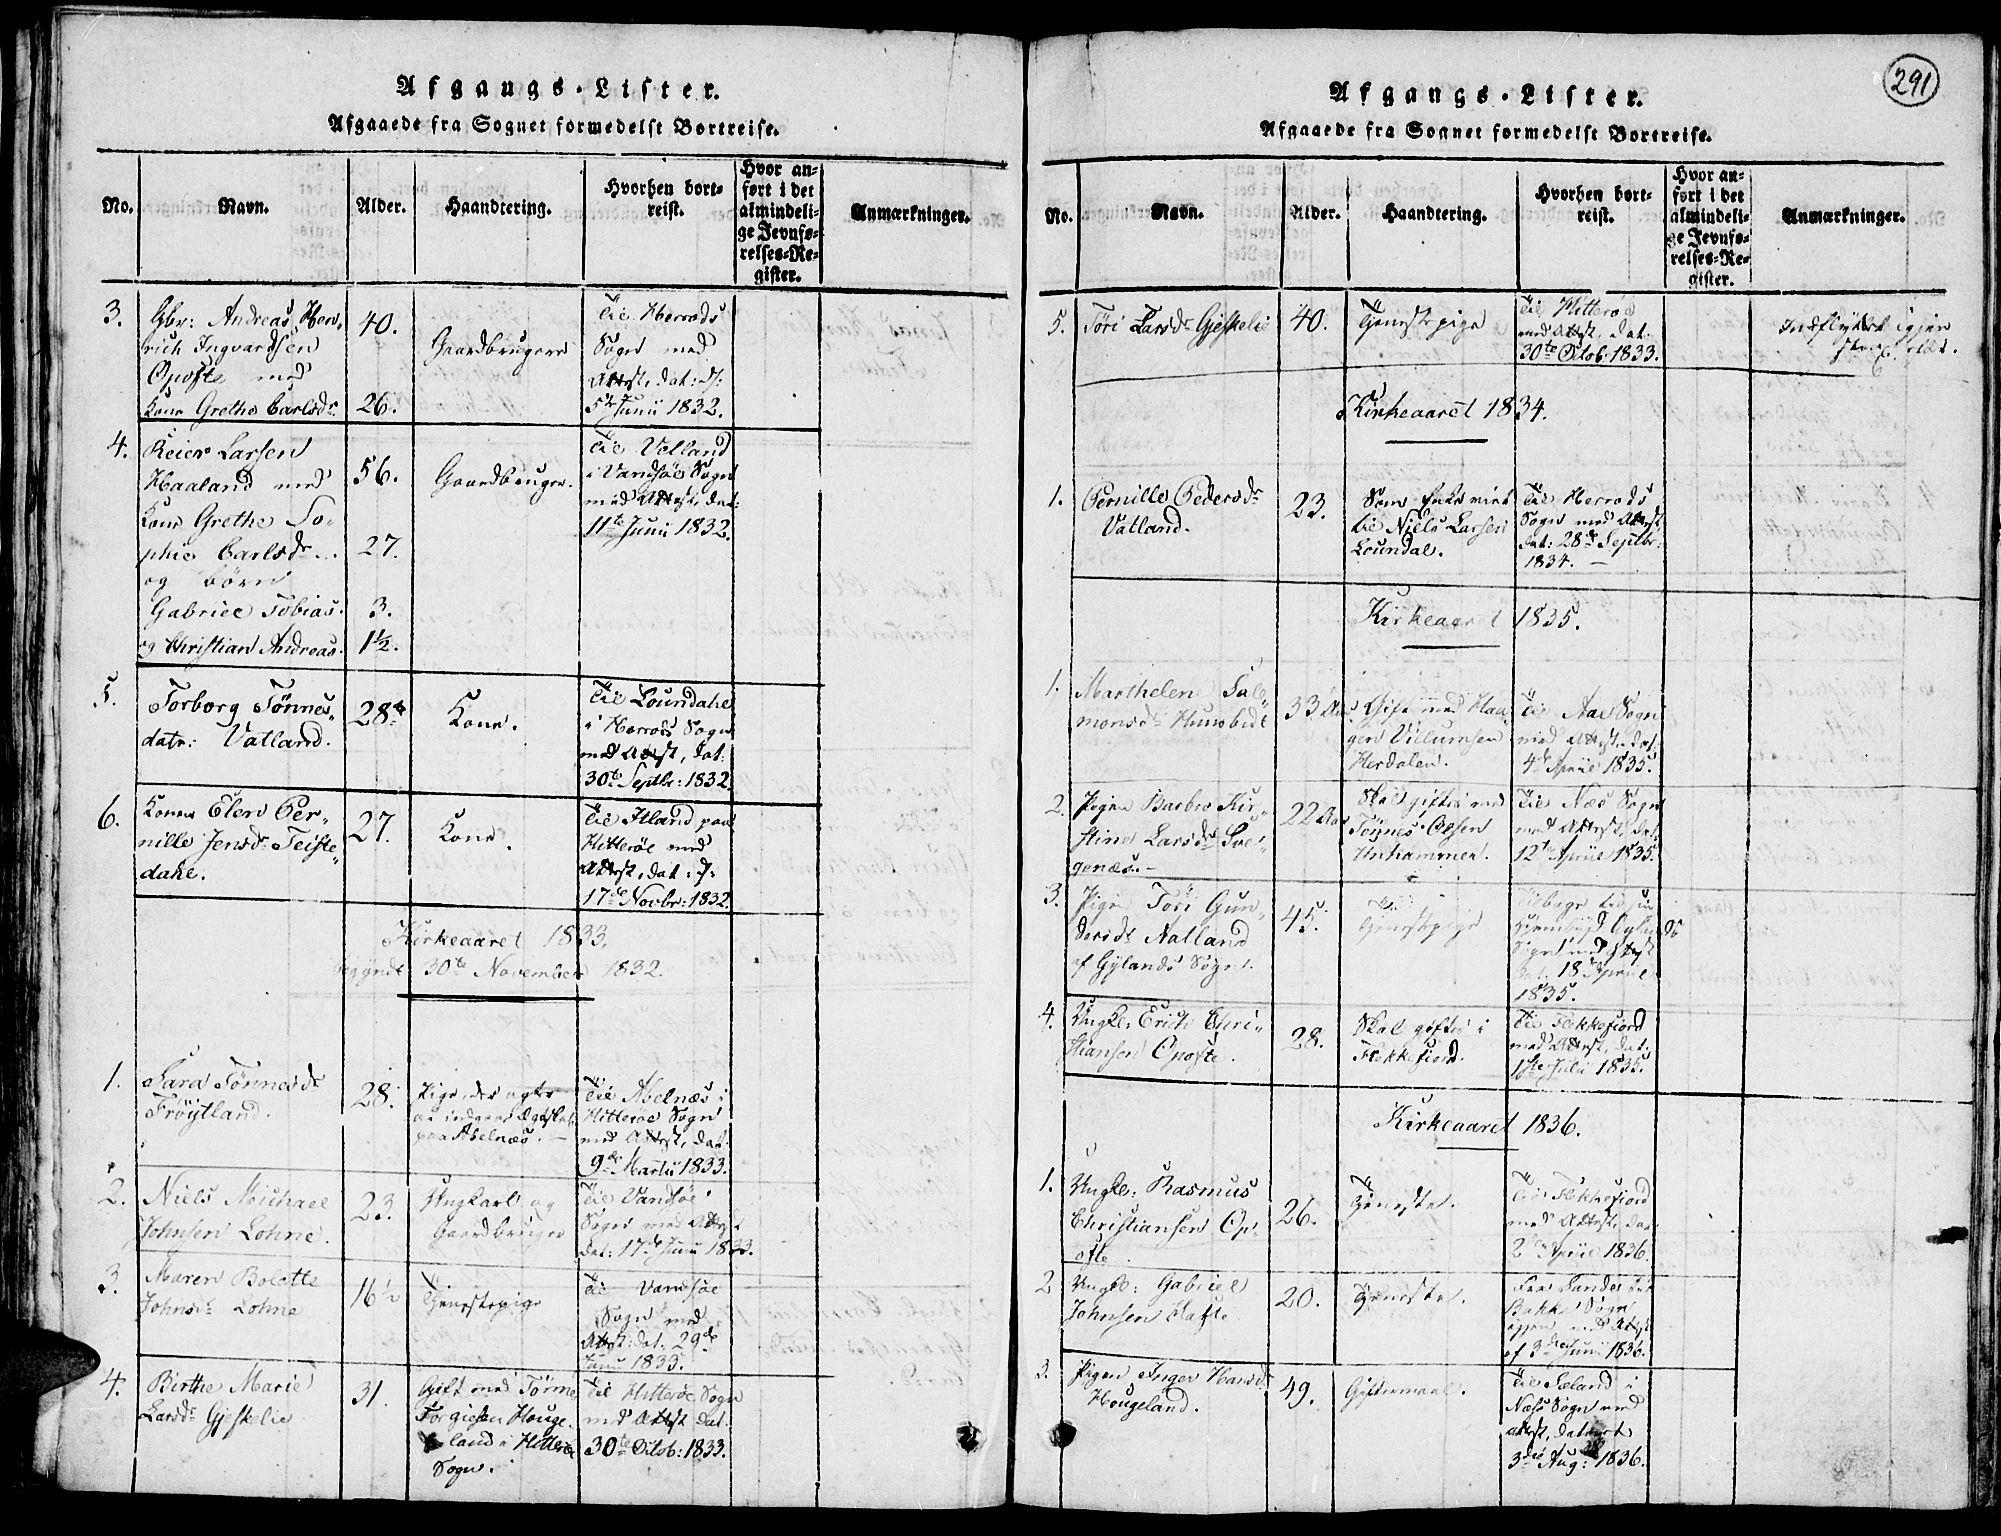 Afgangs-Lister.
Afgaaede fra Sognet formedelst Bortreise.
No.
Navn.
Alder.
Haandtering.
Hvorhen bort-
reist.
Hvor an-
ført i det
almindeli-
ge Jevnfø-
relses-Re-
gister.
Anmærkninger.
3.
Gbr: Andreas Hen-
rich Ingvardsen
Opofte med
Kone Grethe Carlsdr
40.
26.
Gaardbrugere
Til Herreds
Sogn med
Attest, dat: d:
5te Junii 1832.
4.
Reier Larsen
Haaland med
Kone Grethe So-
phie Carlsdr
og børn
Gabriel Tobias
og Christian Andreas
56.
27.
3.
1½.
Gaardbruger.
til Velland
i Vandsøe Sogn
med Attest, dat:
11te Junii 1832.
5.
Torborg Tönnes-
datr: Vatland.
28
Kone.
Til Loundahl
i Herreds Sogn
med Attest, dat:
30te Septbr: 1832.
6.
Konen Elen Per-
nille Jensdr Teiste-
dahl.
27.
Kone.
Til Itland paa
Hitterøe med
Attest, dat: d:
17de Novbr: 1832.
Kirkeaaret 1833.
begyndt 30te November 1832.
1.
Sara Tönnesdr
Fröytland.
28.
Pige, der agter
at indgaae Ægteskab
paa Abelnæs.
Til Abelnæs i
Hitterøe Sogn
med Attest, dat:
9de Martii 1833.
2.
Niels Michael
Johnsen Lohne.
23.
Ungkarl og
Gaardbruger
Til Vandsøe
Sogn med Attest
dat: 17de Junii 1833.
3.
Maren Bolette
Johnsdr Lohne
16½
Tjenestepige
Til Vandsøe
Sogn med
Attest: dat. 29de
Junii 1833.
4.
Birthe Marie
Larsdr Gjeskelie
31.
Gift med Tönne
Torgiesen Houge-
land i Hitterøe
Sogn.
Til Hitterøe Sogn
med Attest dat:
30te Octob: 1833.
291
Afgangs-Lister.
Afgaaede fra Sognet formedelst Bortreise.
No.
Navn.
Alder.
Haandtering.
Hvorhen bort-
reist.
Hvor an-
ført i det
almindeli-
ge Jevnfø-
relses-Re-
gister.
Anmærkninger.
5.
Töri Larsdr Gjeskelie
40.
Tjenestepige
Til Hitterøe
med Attest, dat:
30te Octob: 1833.
Indflyttet igjen
Kirkeaaret 1834.
1.
Pernille Pedersdr
Vatland.
23.
Som Enke viet
til Niels Larsen
Loundal.
Til Herreds
Sogn med Attest
dat: 28de Septbr:
1834.
Kirkeaaret 1835.
1.
Marthelen Sal-
monsdr Hunsbedt
33 Aar
Gift med Haa-
gen Villumsen
Herdalen.
Til Aae Sogn
med Attest, dat:
4de April 1835.
2.
Pigen Barbro Kir-
stine Larsdr Sve-
genæs.
22 Aar
Skal giftes med
Tönnes Olsen
Unhammer.
Til Næs Sogn
med Attest, dat:
12te April 1835.
3.
Pigen Töri Gun-
dersdr Natland
af Gylands Sogn.
45.
Tjenestepige
Tilbage til sin
Hjembygd Gylands
Sogn med Attest
dat. 18de April
1835.
4.
Ungk: Erich Chri-
stiansen Opofte.
28.
Skal giftes i
Flekkefiord.
Til Flekkefiord
med Attest, dat:
1ste Juli 1835.
Kirkeaaret 1836.
1.
Ungk: Rasmus
Christiansen Op-
ofte
26.
Tjeneste.
Til Flekkefiord
med Attest, dat:
2den April 1836.
2
Ungk: Gabriel
Johnsen
20.
Tjeneste.
Fra Sandes til
Bakke Sogn
igjen med Attest
af 3die Juni 1836.
3.
Pigen Inger Hansdr
Hougeland.
49.
Giftermaal.
Til Seland i
Næs Sogn med
Attest, dateret
3die Aug: 1836.